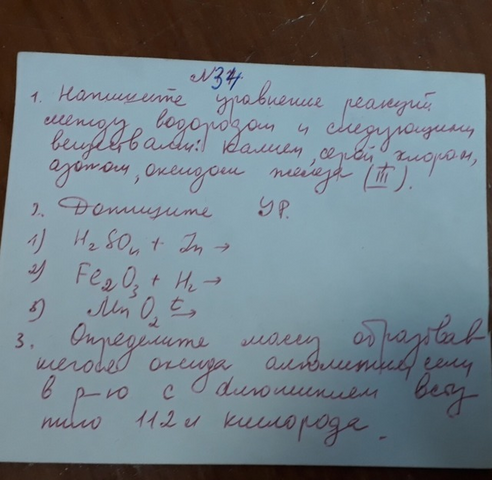 №34
1. Напишите уравнение реакций
между водородом и следующими
веществами: калием, серой, хлором,
азотом, оксидом железа (III).
2. Допишите УР.
1) H2SO4 + Zn →
2) Fe2O3 + H2 →
3) MnO2 t→
3. Определите массу образовав
шегося оксида алюминия, если
в р-ю с алюминием всту
пило 112 л кислорода.